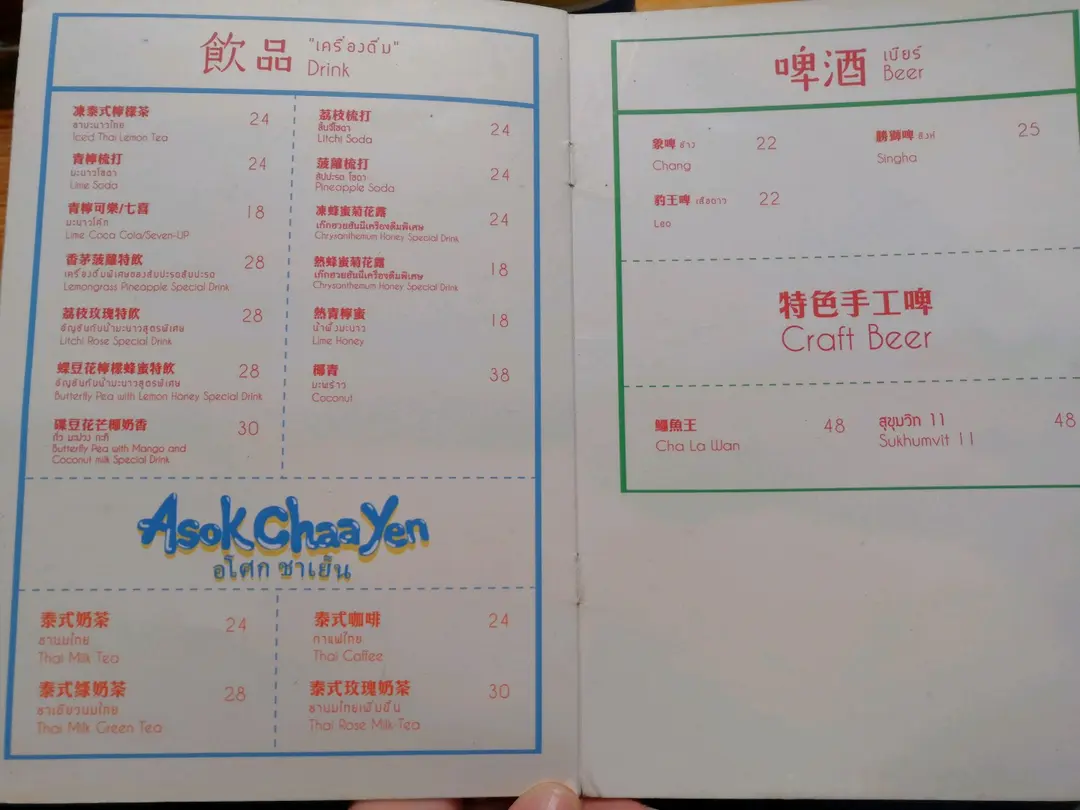 飲品 "เครื่องดื่ม"
Drink
凍泰式檸檬茶 24
ชามะนาวไทย
Iced Thai Lemon Tea
青檸梳打 24
มะนาวโซดา
Lime Soda
青檸可樂/七喜 18
มะนาวโค้ก
Lime Coca Cola/Seven-UP
香茅菠蘿特飲 28
เครื่องดื่มพิเศษของสับปะรดสับปะรด
Lemongrass Pineapple Special Drink
荔枝玫瑰特飲 28
อัญชันกับน้ำมะนาวสูตรพิเศษ
Litchi Rose Special Drink
蝶豆花檸檬蜂蜜特飲 28
อัญชันกับน้ำมะนาวสูตรพิเศษ
Butterfly Pea with Lemon Honey Special Drink
碟豆花芒椰奶香 30
ถั่ว มะม่วง กะทิ
Butterfly Pea with Mango and
Coconut milk Special Drink
荔枝梳打 24
ลิ้นจี่โซดา
Litchi Soda
菠蘿梳打 24
สัปปะรด โซดา
Pineapple Soda
凍蜂蜜菊花露 24
เก๊กฮวยฮันนี่เครื่องดื่มพิเศษ
Chrysanthemum Honey Special Drink
熱蜂蜜菊花露 18
เก๊กฮวยฮันนี่เครื่องดื่มพิเศษ
Chrysanthemum Honey Special Drink
熱青檸蜜 18
น้ำผึ้งมะนาว
Lime Honey
椰青 38
มะพร้าว
Coconut
Asok Chaa Yen
อโศก ชาเย็น
泰式奶茶 24
ชานมไทย
Thai Milk Tea
泰式綠奶茶 28
ชาเขียวนมไทย
Thai Milk Green Tea
泰式咖啡 24
กาแฟไทย
Thai Coffee
泰式玫瑰奶茶 30
ชานมไทยเพิ่มขึ้น
Thai Rose Milk Tea
啤酒 เบียร์
Beer
象啤 ช้าง 22
Chang
豹王啤 เสือดาว 22
Leo
勝獅啤 สิงห์ 25
Singha
特色手工啤
Craft Beer
鱷魚王 48
Cha La Wan
สุขุมวิท 11 48
Sukhumvit 11